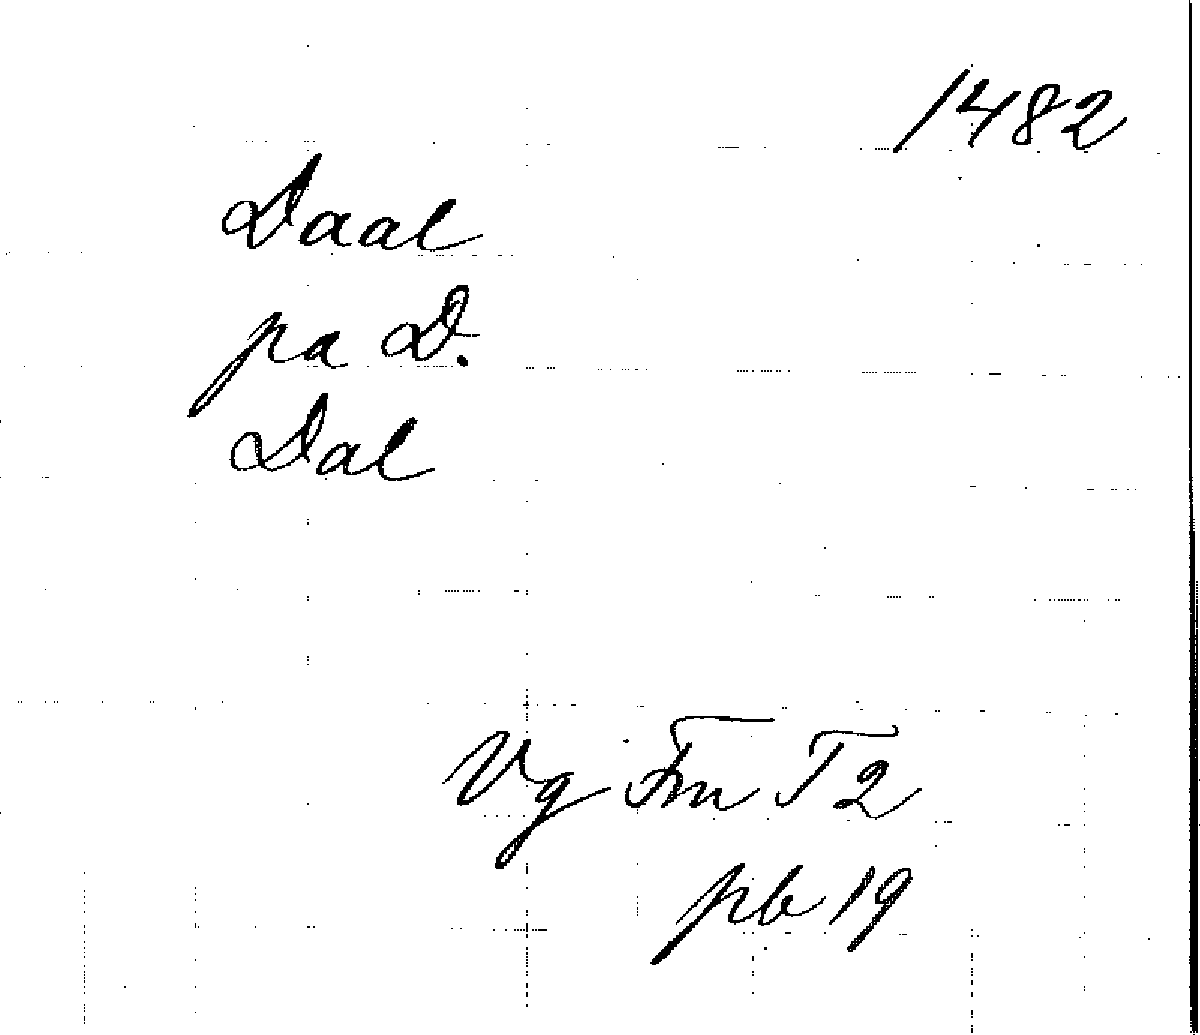 1482
Daal
pa D.
Dal
Vg Fm T2
pb 19